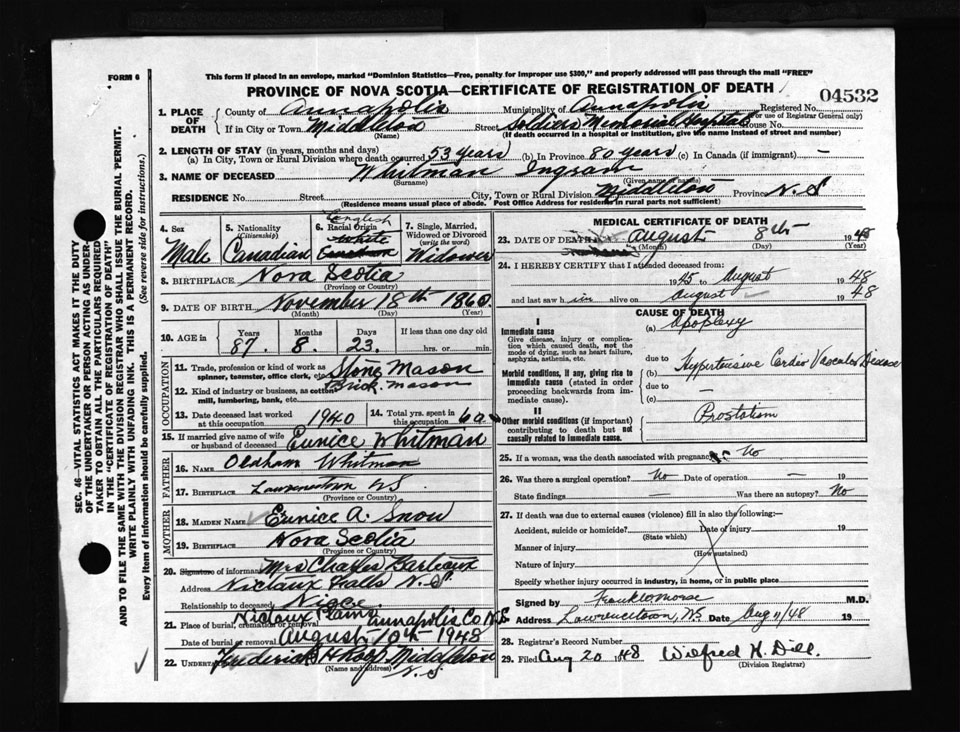 FORM 6
This form if placed in an envelope, marked "Dominion Statistics—Free, penalty for improper use $300," and properly addressed will pass through the mail "FREE"
PROVINCE OF NOVA SCOTIA—CERTIFICATE OF REGISTRATION OF DEATH
04532
1. PLACE OF DEATH
County of Annapolis Municipality of Annapolis Registered No.
(For use of Registrar General only)
If in City or Town Middleton Street Soldiers Memorial Hospital House No.
(Name) (If death occurred in a hospital or institution, give its name instead of street and number)
2. LENGTH OF STAY (in years, months and days)
(a) In City, Town or Rural Division where death occurred 53 years (b) In Province 80 years (c) In Canada (if immigrant) —
3. NAME OF DECEASED Whitman Ingram
(Surname) (Given name / names)
RESIDENCE No. Street City, Town or Rural Division Middleton Province N.S
(Residence means usual place of abode. Post Office Address for residence in rural parts not sufficient)
4. Sex Male
5. Nationality (Citizenship) Canadian
6. Racial Origin English White
7. Single, Married, Widowed or Divorced (write the word) Widower
8. BIRTHPLACE Nova Scotia
(Province or Country)
9. DATE OF BIRTH November 18th 1860
(Month) (Day) (Year)
10. AGE in Years 87 Months 8 Days 23 If less than one day old hrs. or min.
OCCUPATION
11. Trade, profession or kind of work as spinner, teamster, office clerk, etc. Stone Mason
12. Kind of industry or business, as cotton mill, lumbering, bank, etc. Brick mason
13. Date deceased last worked at this occupation 1940
14. Total yrs. spent in this occupation 60
15. If married give name of wife or husband of deceased Eunice Whitman
FATHER
16. NAME Oldham Whitman
17. BIRTHPLACE Lawrencetown NS
(Province or Country)
MOTHER
18. MAIDEN NAME Eunice A. Snow
19. BIRTHPLACE Nova Scotia
(Province or Country)
20. Signature of informant Mrs Charles Barteaux
Address Nictaux Falls N.S.
Relationship to deceased Niece
21. Place of burial, cremation or removal Nictaux Plains Annapolis Co N.S.
Date of burial or removal August 10th 1948
22. Undertaker Frederick Middleton N.S
(Name and address)
MEDICAL CERTIFICATE OF DEATH
23. DATE OF DEATH August 8th 1948
(Month) (Day) (Year)
24. I HEREBY CERTIFY that I attended deceased from:
1945 to August 1948
and last saw h im alive on August 1948
CAUSE OF DEATH
I
Immediate cause
Give disease, injury or complication which caused death, not the mode of dying, such as heart failure, asphyxia, asthenia, etc.
(a) Apoplexy
due to Hypertensive Cardio Vascular Disease
Morbid conditions, if any, giving rise to immediate cause (stated in order proceeding backwards from immediate cause).
(b)
due to —
(c)
II
Other morbid conditions (if important) contributing to death but not causally related to immediate cause.
Prostatism
25. If a woman, was the death associated with pregnancy? No
26. Was there a surgical operation? No Date of operation — 19
State findings — Was there an autopsy? No
27. If death was due to external causes (violence) fill in also the following:—
Accident, suicide or homicide? Date of injury 19
(State which)
Manner of injury
(How sustained)
Nature of injury
Specify whether injury occurred in industry, in home, or in public place
Signed by Frank W Morse M.D.
Address Lawrencetown, N.S. Date Aug 11/48
28. Registrar's Record Number
29. Filed Aug 20 1948 Wilfred H. Dill.
(Division Registrar)
SEC. 46—VITAL STATISTICS ACT MAKES IT THE DUTY
OF THE UNDERTAKER OR PERSON ACTING AS UNDER-
TAKER TO OBTAIN ALL THE PARTICULARS REQUIRED
IN THE "CERTIFICATE OF REGISTRATION OF DEATH"
AND TO FILE THE SAME WITH THE DIVISION REGISTRAR WHO SHALL ISSUE THE BURIAL PERMIT.
WRITE PLAINLY WITH UNFADING INK. THIS IS A PERMANENT RECORD.
Every item of information should be carefully supplied. (See reverse side for instructions.)